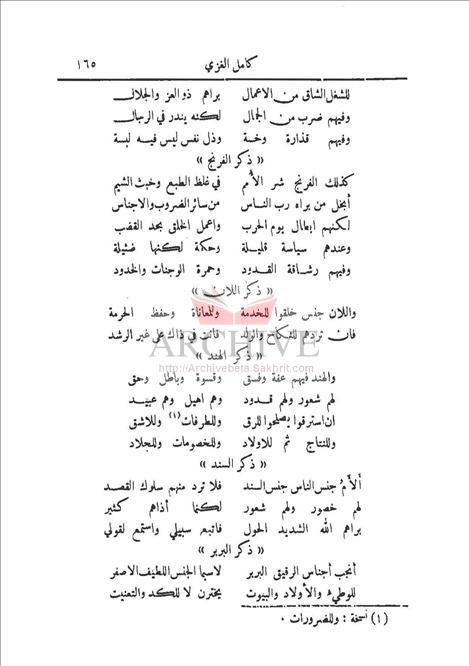 كامل الغزي ١٦٥
للشغل الشاق من الاعمال براهم ذو العز والجلال
وفيهم ضرب من الجمال لكنه يندر في الرجال
وفيهم قذارة وخسة وذل نفس ليس فيه لبسة
« ذكر الفرنج »
كذلك الفرنج شر الأمم في غلظ الطبع وخبث الشيم
أبخل من براه رب الناس من سائر الضروب والاجناس
لكنهم ابطال يوم الحرب واعمل الخلق بحد القضب
وعندهم سياسة قليلة وحكمة لكنها ضئيلة
وفيهم رشاقة القدود وحمرة الوجنات والخدود
« ذكر اللان »
واللان جنس خلقوا للخدمة وللمعاناة وحفظ الحرمة
فان تردهم للنكاح والولد فانت في ذاك على غير الرشد
« ذكر الهند »
والهند فيهم عفة وفسق وقسوة وباطل وحق
لهم شعور ولهم قدود وهم اهيل وهم عبيد
ان استرقوا يصلحوا للرق وللطرفات (١) وللاشق
وللنتاج ثم للاولاد وللخصومات وللجلاد
« ذكر السند »
ألأمُ جنس الناس جنس السند فلا ترد منهم سلوك القصد
لهم خصور ولهم شعور لكنما أذاهم كثير
براهم الله الشديد الحول فاتبع سبيلي واستمع لقولي
« ذكر البربر »
أنجب أجناس الرقيق البربر لاسيما الجنس اللطيف الاصفر
للوطيء والأولاد والبيوت يخترن لا للكد والتعنيت
(١) نسخة : وللضرورات .
ARCHIVE
http://Archivebeta.Sakhrit.com